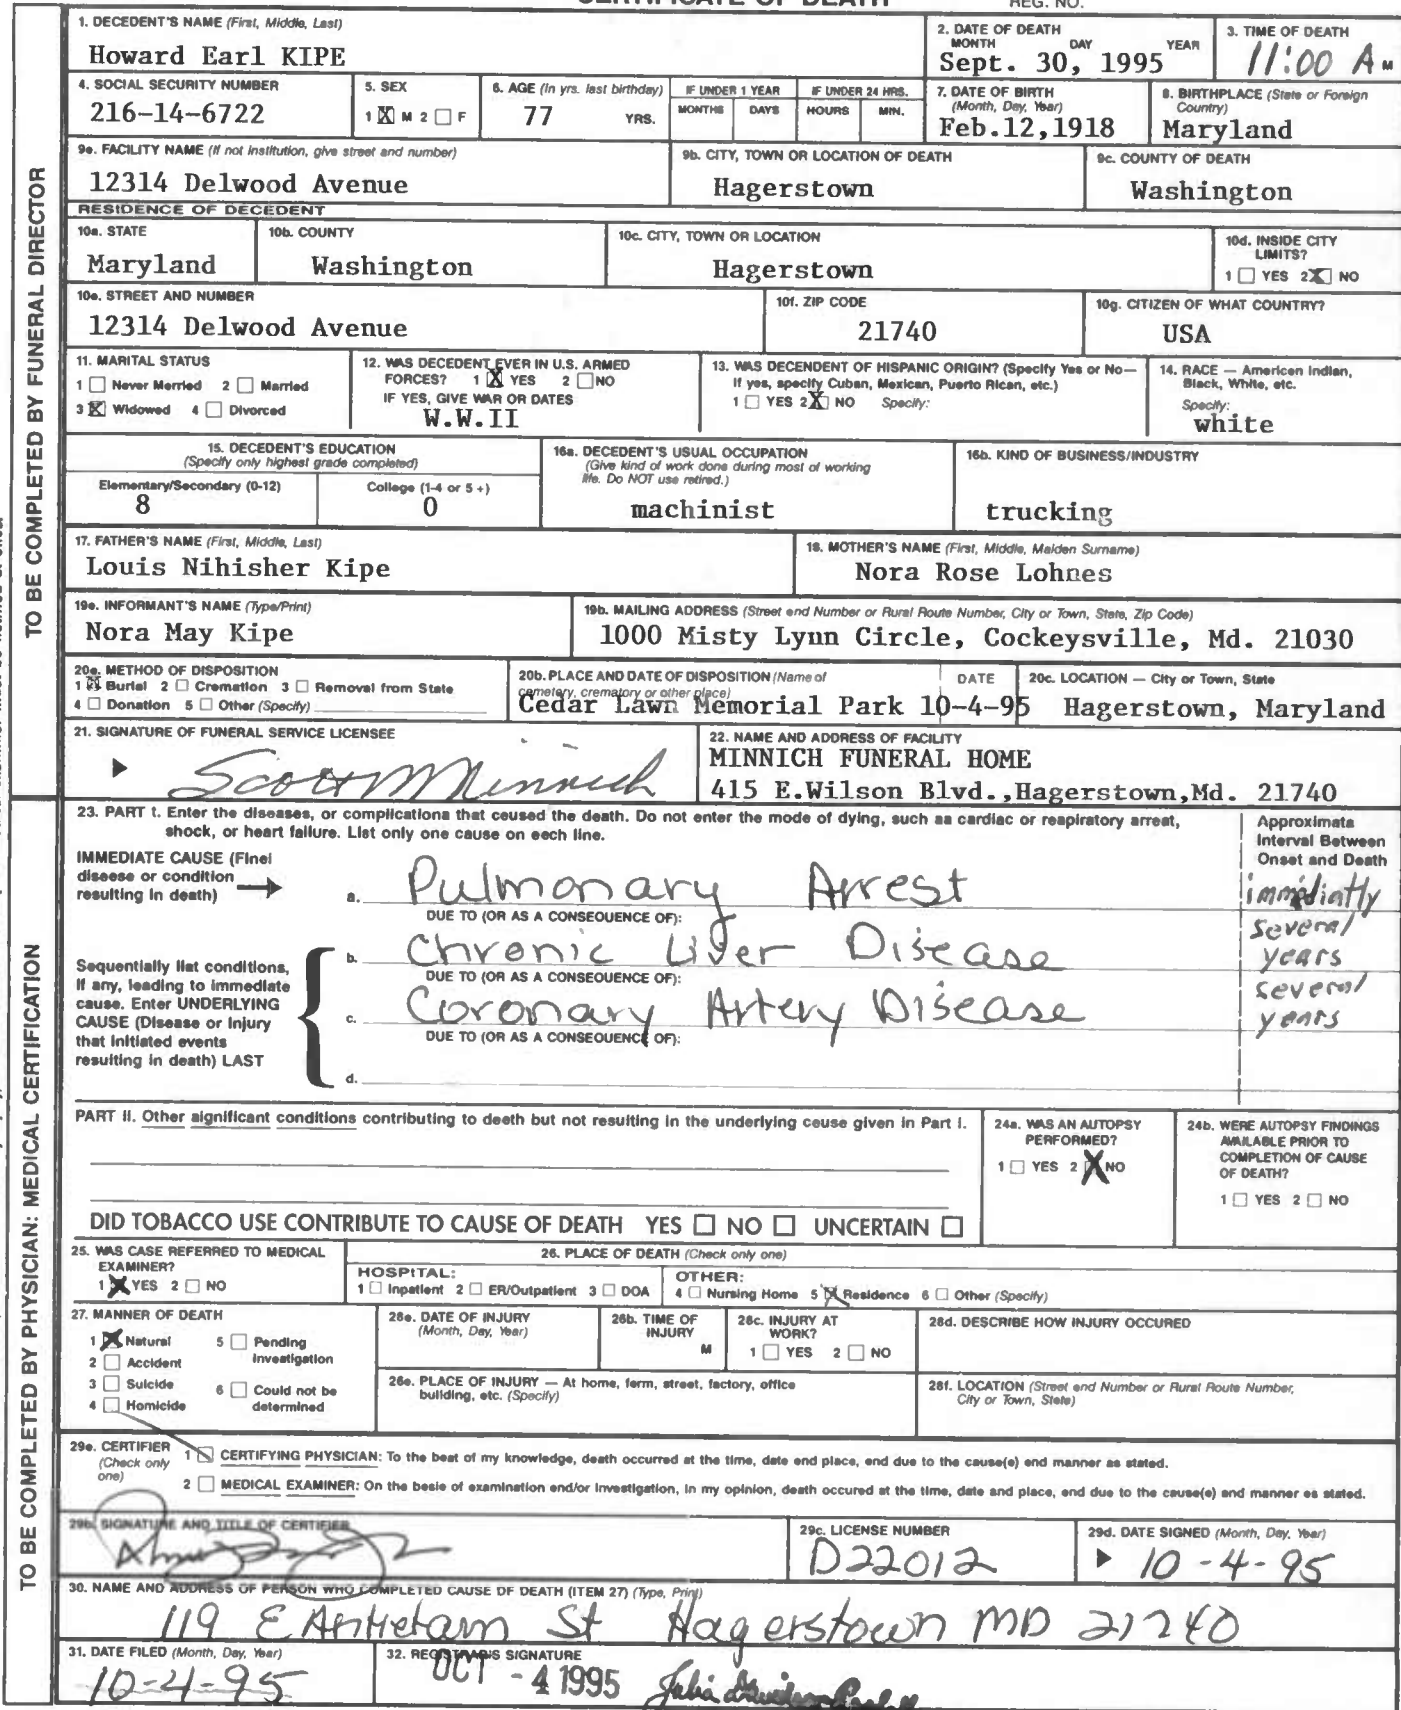 CERTIFICATE OF DEATH
REG. NO.
TO BE COMPLETED BY FUNERAL DIRECTOR
1. DECEDENT'S NAME (First, Middle, Last)
Howard Earl KIPE
2. DATE OF DEATH
MONTH DAY YEAR
Sept. 30, 1995
3. TIME OF DEATH
11:00 A M
4. SOCIAL SECURITY NUMBER
216-14-6722
5. SEX
1 X M 2 F
6. AGE (In yrs. last birthday)
77 YRS.
IF UNDER 1 YEAR
MONTHS DAYS
IF UNDER 24 HRS.
HOURS MIN.
7. DATE OF BIRTH
(Month, Day, Year)
Feb.12,1918
8. BIRTHPLACE (State or Foreign
Country)
Maryland
9a. FACILITY NAME (If not institution, give street and number)
12314 Delwood Avenue
9b. CITY, TOWN OR LOCATION OF DEATH
Hagerstown
9c. COUNTY OF DEATH
Washington
RESIDENCE OF DECEDENT
10a. STATE
Maryland
10b. COUNTY
Washington
10c. CITY, TOWN OR LOCATION
Hagerstown
10d. INSIDE CITY
LIMITS?
1 YES 2 X NO
10e. STREET AND NUMBER
12314 Delwood Avenue
10f. ZIP CODE
21740
10g. CITIZEN OF WHAT COUNTRY?
USA
11. MARITAL STATUS
1 Never Married 2 Married
3 X Widowed 4 Divorced
12. WAS DECEDENT EVER IN U.S. ARMED
FORCES? 1 X YES 2 NO
IF YES, GIVE WAR OR DATES
W.W.II
13. WAS DECENDENT OF HISPANIC ORIGIN? (Specify Yes or No—
If yes, specify Cuban, Mexican, Puerto Rican, etc.)
1 YES 2 X NO Specify:
14. RACE — American Indian,
Black, White, etc.
Specify:
white
15. DECEDENT'S EDUCATION
(Specify only highest grade completed)
Elementary/Secondary (0-12)
8
College (1-4 or 5 +)
0
16a. DECEDENT'S USUAL OCCUPATION
(Give kind of work done during most of working
life. Do NOT use retired.)
machinist
16b. KIND OF BUSINESS/INDUSTRY
trucking
17. FATHER'S NAME (First, Middle, Last)
Louis Nihisher Kipe
18. MOTHER'S NAME (First, Middle, Maiden Surname)
Nora Rose Lohnes
19a. INFORMANT'S NAME (Type/Print)
Nora May Kipe
19b. MAILING ADDRESS (Street and Number or Rural Route Number, City or Town, State, Zip Code)
1000 Misty Lynn Circle, Cockeysville, Md. 21030
20a. METHOD OF DISPOSITION
1 X Burial 2 Cremation 3 Removal from State
4 Donation 5 Other (Specify)
20b. PLACE AND DATE OF DISPOSITION (Name of
cemetery, crematory or other place)
DATE
Cedar Lawn Memorial Park 10-4-95
20c. LOCATION — City or Town, State
Hagerstown, Maryland
21. SIGNATURE OF FUNERAL SERVICE LICENSEE
Scott M Minnich
22. NAME AND ADDRESS OF FACILITY
MINNICH FUNERAL HOME
415 E.Wilson Blvd.,Hagerstown,Md. 21740
TO BE COMPLETED BY PHYSICIAN: MEDICAL CERTIFICATION
23. PART I. Enter the diseases, or complications that caused the death. Do not enter the mode of dying, such as cardiac or respiratory arrest,
shock, or heart failure. List only one cause on each line.
Approximate
Interval Between
Onset and Death
IMMEDIATE CAUSE (Final
disease or condition
resulting in death)
a. Pulmonary Arrest
immidiatly
DUE TO (OR AS A CONSEQUENCE OF):
b. Chronic Liver Disease
several
years
DUE TO (OR AS A CONSEQUENCE OF):
c. Coronary Artery Disease
several
years
DUE TO (OR AS A CONSEQUENCE OF):
d.
Sequentially list conditions,
if any, leading to immediate
cause. Enter UNDERLYING
CAUSE (Disease or injury
that initiated events
resulting in death) LAST
PART II. Other significant conditions contributing to death but not resulting in the underlying cause given in Part I.
24a. WAS AN AUTOPSY
PERFORMED?
1 YES 2 X NO
24b. WERE AUTOPSY FINDINGS
AVAILABLE PRIOR TO
COMPLETION OF CAUSE
OF DEATH?
1 YES 2 NO
DID TOBACCO USE CONTRIBUTE TO CAUSE OF DEATH YES NO UNCERTAIN
25. WAS CASE REFERRED TO MEDICAL
EXAMINER?
1 X YES 2 NO
26. PLACE OF DEATH (Check only one)
HOSPITAL:
1 Inpatient 2 ER/Outpatient 3 DOA
OTHER:
4 Nursing Home 5 X Residence 6 Other (Specify)
27. MANNER OF DEATH
1 X Natural 5 Pending
Investigation
2 Accident
3 Suicide 6 Could not be
determined
4 Homicide
28a. DATE OF INJURY
(Month, Day, Year)
28b. TIME OF
INJURY
M
28c. INJURY AT
WORK?
1 YES 2 NO
28d. DESCRIBE HOW INJURY OCCURED
28e. PLACE OF INJURY — At home, farm, street, factory, office
building, etc. (Specify)
28f. LOCATION (Street and Number or Rural Route Number,
City or Town, State)
29a. CERTIFIER
(Check only
one)
1 CERTIFYING PHYSICIAN: To the best of my knowledge, death occurred at the time, date and place, and due to the cause(s) and manner as stated.
2 MEDICAL EXAMINER: On the basis of examination and/or investigation, in my opinion, death occured at the time, date and place, and due to the cause(s) and manner as stated.
29b. SIGNATURE AND TITLE OF CERTIFIER
29c. LICENSE NUMBER
D22012
29d. DATE SIGNED (Month, Day, Year)
10-4-95
30. NAME AND ADDRESS OF PERSON WHO COMPLETED CAUSE OF DEATH (ITEM 27) (Type, Print)
119 E Antietam St Hagerstown MD 21740
31. DATE FILED (Month, Day, Year)
10-4-95
32. REGISTRAR'S SIGNATURE
OCT - 4 1995